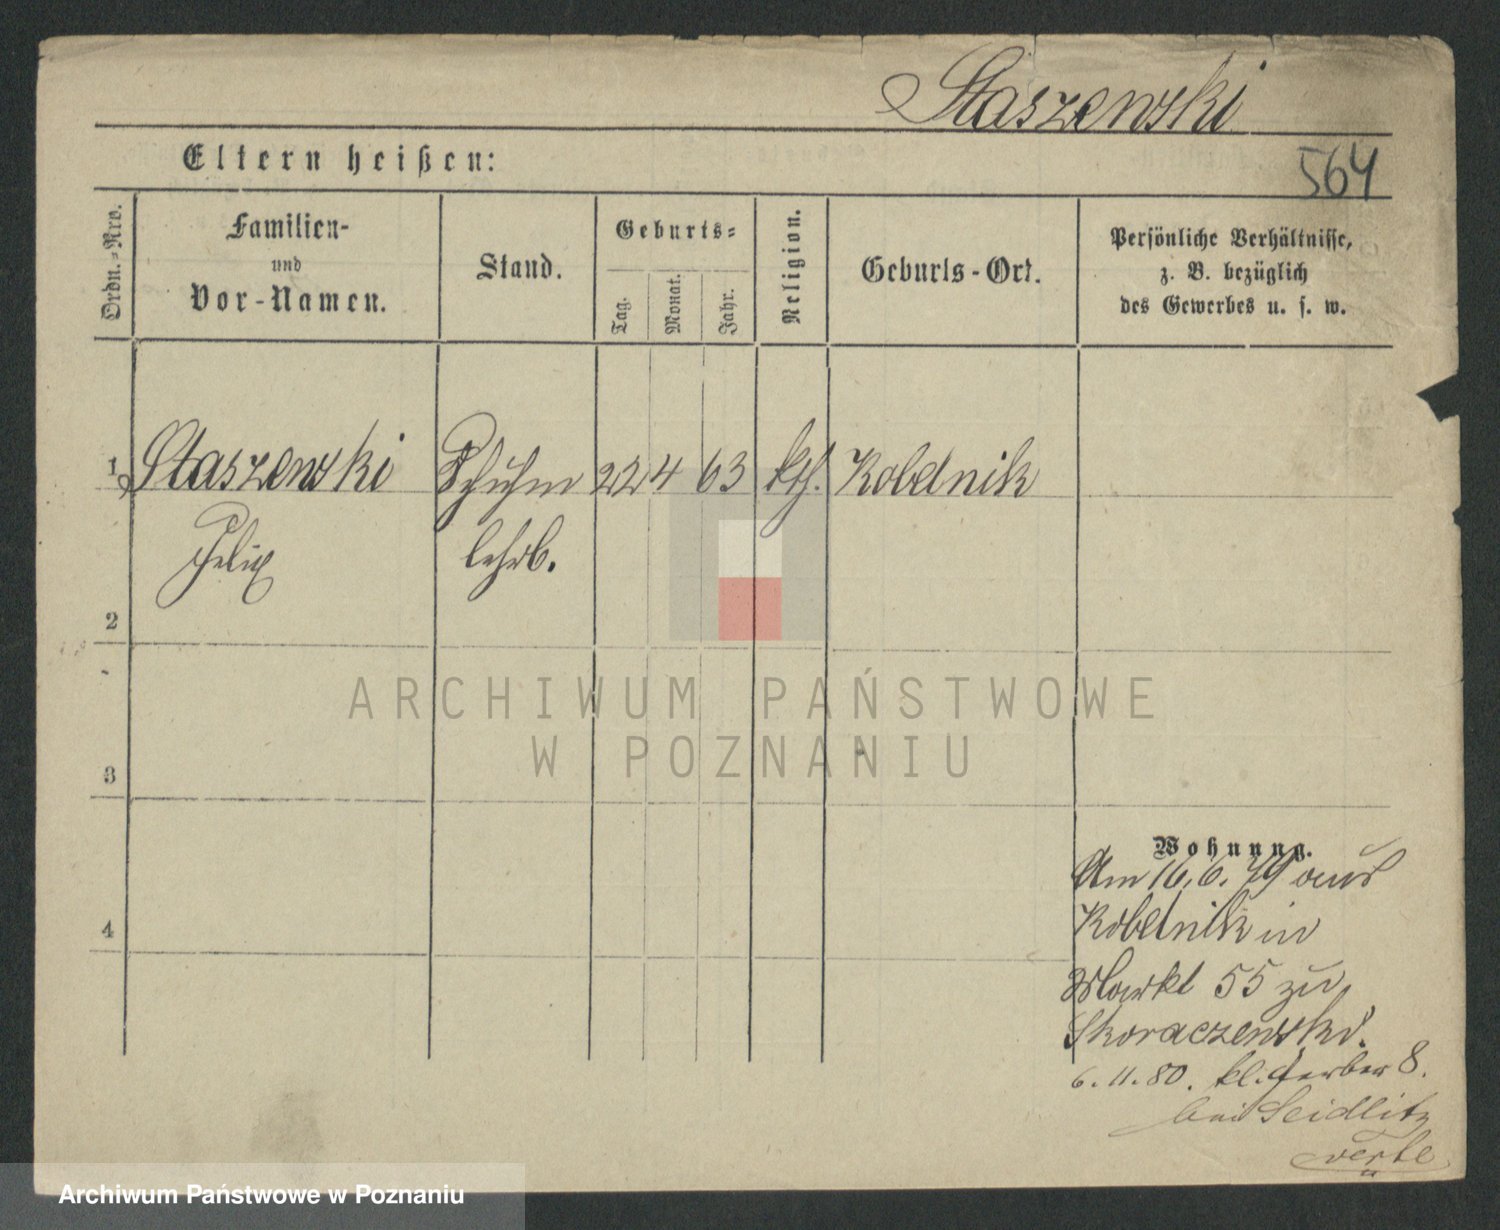 Staszewski
Eltern heißen:
564
Ordn.-Nro.
Familien-
und
Vor-Namen.
Stand.
Geburts-
Tag.
Monat.
Jahr.
Religion.
Geburts-Ort.
Persönliche Verhältnisse,
z. B. bezüglich
des Gewerbes u. s. w.
1 Staszewski Schuhm 22 4 63 kth. Kobelnik
Felix lehrb.
2
3
4
Wohnung.
Am 16.6.79 aus
Kobelnik in
Markt 55 zu
Skoraczewski.
6.11.80. kl. Gerber 8.
bei Seidlitz
ARCHIWUM PAŃSTWOWE
W POZNANIU
Archiwum Państwowe w Poznaniu